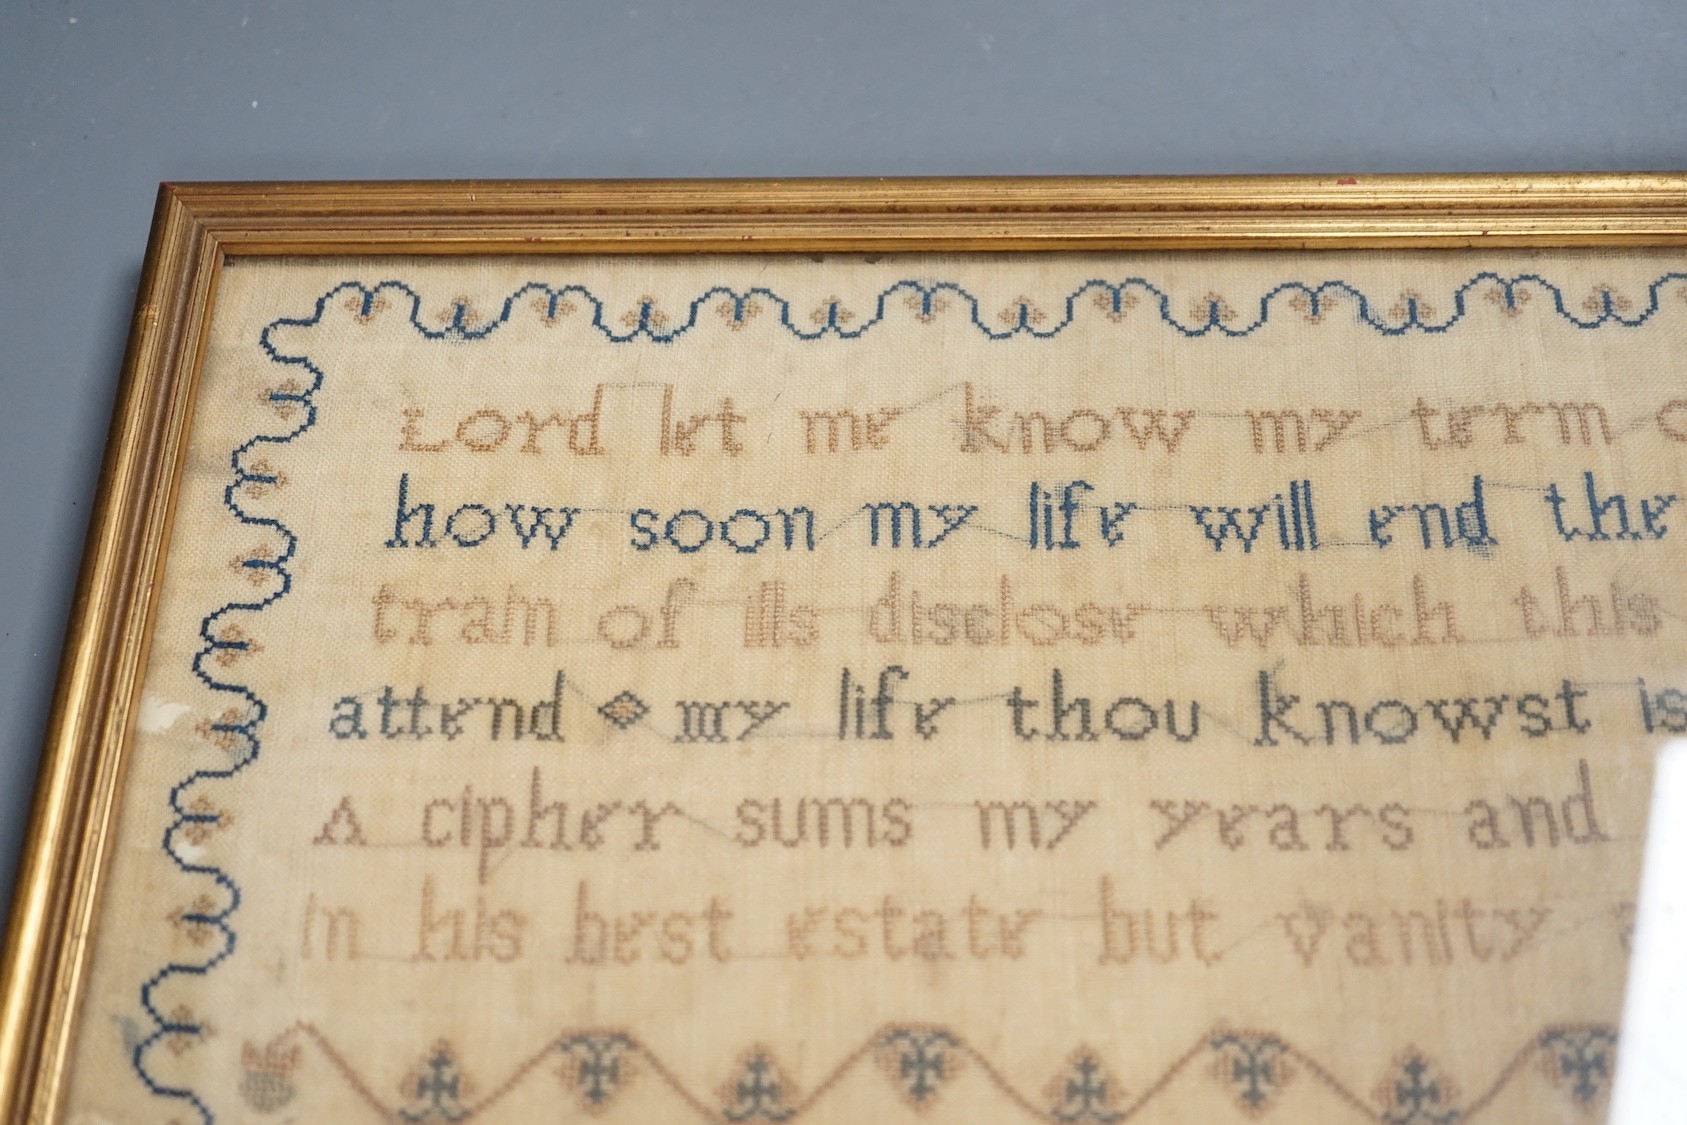 Lord let me know my term
how soon my life will end the
train of ills disclose which this
attend my life thou knowst is
A cipher sums my years and
in his best estate but vanity